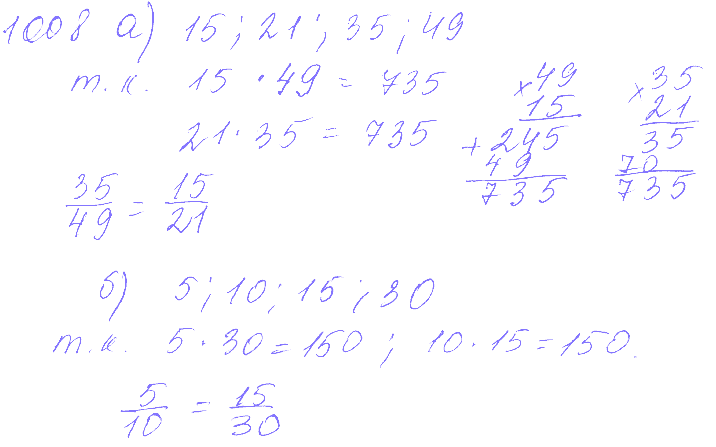 1008 а) 15 ; 21 ; 35 ; 49
т.к. 15 · 49 = 735
21 · 35 = 735
× 49
15
+ 245
49
735
× 35
21
35
70
735
35/49 = 15/21
б) 5 ; 10 ; 15 ; 30
т.к. 5 · 30 = 150 ; 10 · 15 = 150.
5/10 = 15/30